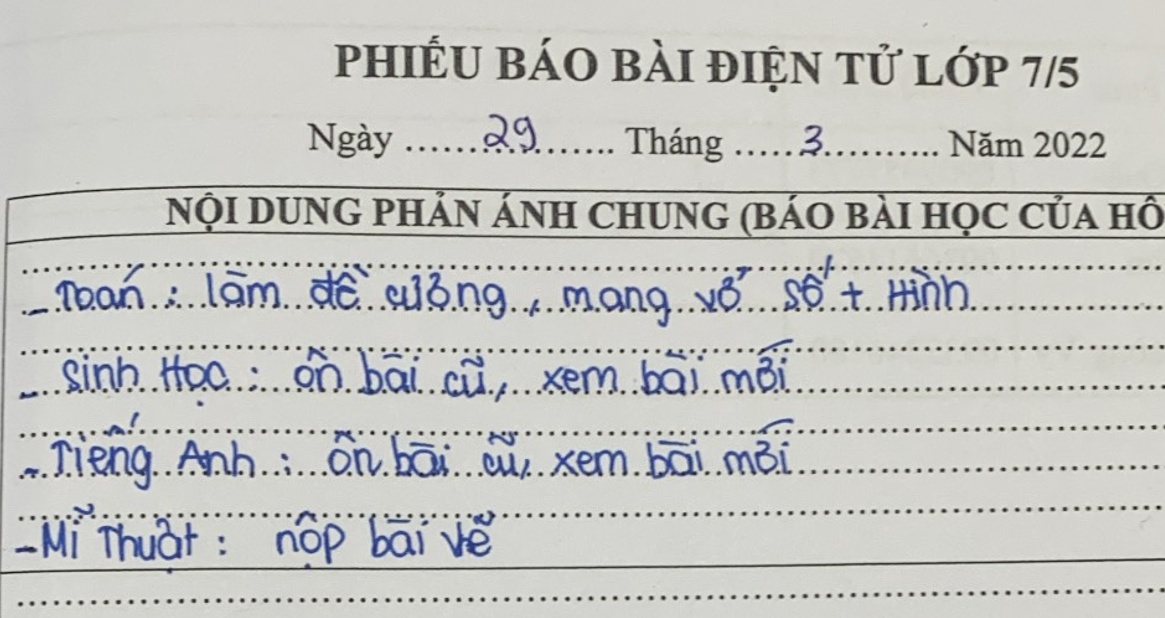 PHIẾU BÁO BÀI ĐIỆN TỬ LỚP 7/5
Ngày ......29...... Tháng .....3.......... Năm 2022
NỘI DUNG PHẢN ÁNH CHUNG (BÁO BÀI HỌC CỦA HÔ
- Toán : làm đề cương, mang vở số + Hình
- Sinh Học : ôn bài cũ, xem bài mới
- Tiếng Anh : ôn bài cũ, xem bài mới
- Mĩ Thuật : nộp bài vẽ